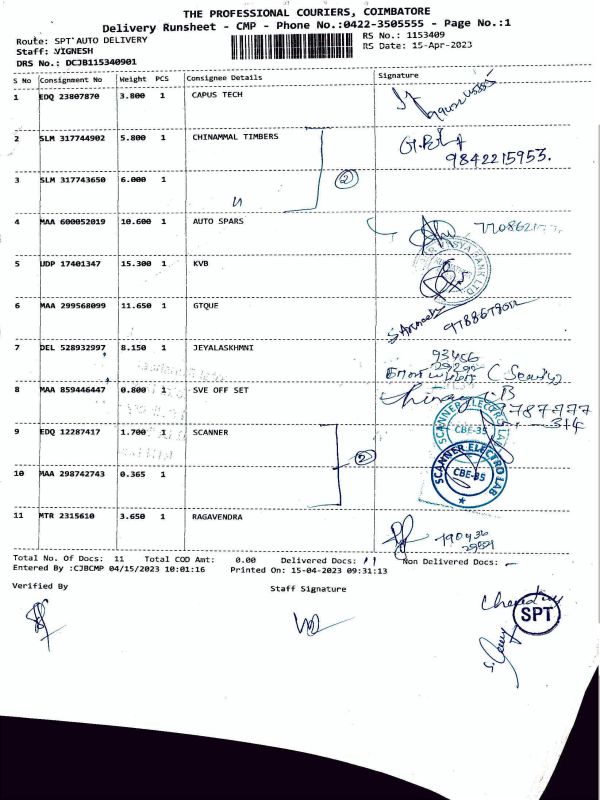 THE PROFESSIONAL COURIERS, COIMBATORE
Delivery Runsheet - CMP - Phone No.:0422-3505555 - Page No.:1
Route: SPT AUTO DELIVERY
RS No.: 1153409
Staff: VIGNESH
RS Date: 15-Apr-2023
DRS No.: DCJB115340901
S No Consignment No Weight PCS Consignee Details Signature
1 EDQ 23807870 3.800 1 CAPUS TECH
2 SLM 317744902 5.800 1 CHINAMMAL TIMBERS
9842215953.
3 SLM 317743650 6.000 1
2
4 MAA 600052019 10.600 1 AUTO SPARS
5 UDP 17401347 15.300 1 KVB
6 MAA 299568099 11.650 1 GTQUE
7 DEL 528932997 8.150 1 JEYALASKHMNI
8 MAA 859446447 0.800 1 SVE OFF SET
9 EDQ 12287417 1.700 1 SCANNER
CBE-35
SCANNER ELECTRO LAB
CBE-35
2
10 MAA 298742743 0.365 1
11 MTR 2315610 3.650 1 RAGAVENDRA
Total No. Of Docs: 11 Total COD Amt: 0.00 Delivered Docs: 11 Non Delivered Docs: -
Entered By :CJBCMP 04/15/2023 10:01:16 Printed On: 15-04-2023 09:31:13
Verified By Staff Signature
SPT